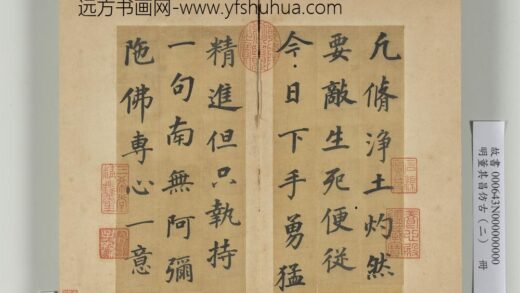 远方书画网-www.yfshuhua.com
凢脩浄土灼然
要敵生死便從
今日下手勇猛
精進但只執持
一句南無阿彌
陁佛專心一意
故書 000643N000000000
明董其昌仿古（二） 冊